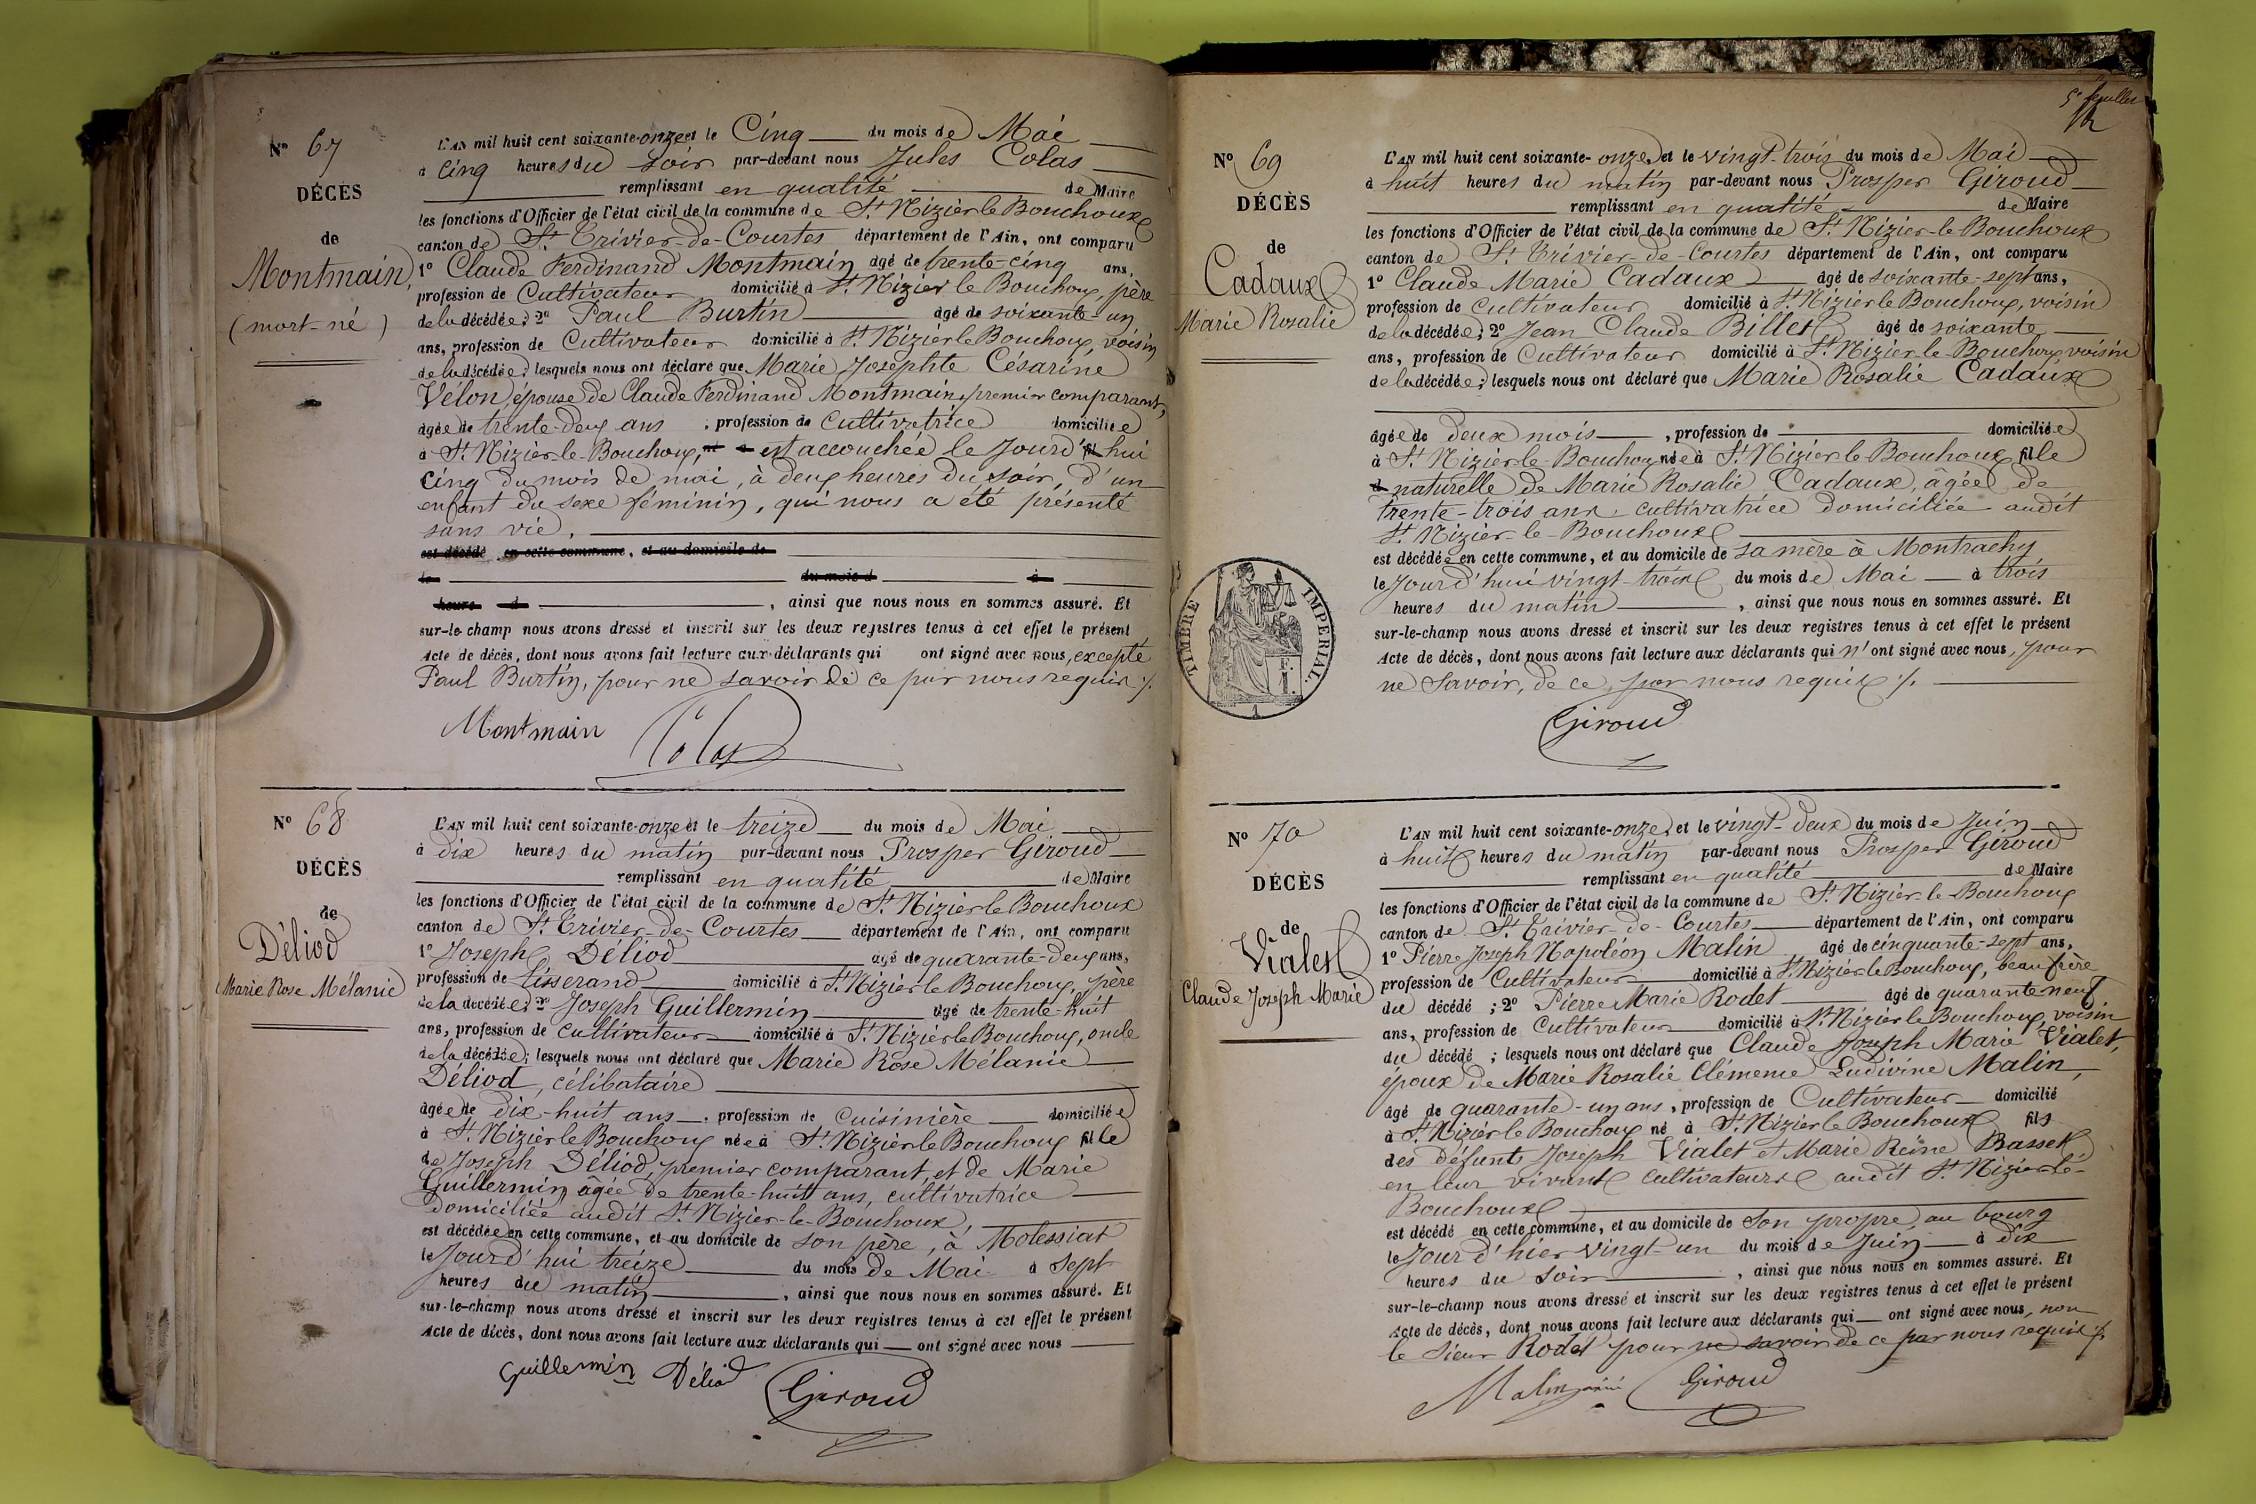 N° 67
DÉCÈS
de
Montmain,
(mort-né)
L'AN mil huit cent soixante-onze et le Cinq du mois de Mai
à Cinq heures du soir par-devant nous Jules Colas
remplissant en qualité de Maire
les fonctions d'Officier de l'état civil de la commune de St Nizier le Bouchoux
canton de St Trivier-de-Courtes département de l'Ain, ont comparu
1° Claude Ferdinand Montmain âgé de trente-cinq ans,
profession de Cultivateur domicilié à St Nizier le Bouchoux, père
de la décédée; 2° Paul Burtin âgé de soixante-un
ans, profession de Cultivateur domicilié à St Nizier le Bouchoux, voisin
de la décédée; lesquels nous ont déclaré que Marie Josephte Césarine
Vélon, épouse de Claude Ferdinand Montmain, premier comparant,
âgée de trente-deux ans, profession de Cultivatrice domiciliée
à St Nizier-le-Bouchoux, est accouchée le jourd'hui
cinq du mois de mai, à deux heures du soir, d'un
enfant du sexe féminin, qui nous a été présenté
sans vie.
est décédé en cette commune, et au domicile de
le du mois d à
heure d , ainsi que nous nous en sommes assuré. Et
sur-le-champ nous avons dressé et inscrit sur les deux registres tenus à cet effet le présent
Acte de décès, dont nous avons fait lecture aux déclarants qui ont signé avec nous, excepté
Paul Burtin, pour ne savoir de ce par nous requis ./.
Montmain Colas
N° 68
DÉCÈS
de
Déliod
Marie Rose Mélanie
L'AN mil huit cent soixante-onze et le treize du mois de Mai
à dix heures du matin par-devant nous Prosper Giroud
remplissant en qualité de Maire
les fonctions d'Officier de l'état civil de la commune de St Nizier le Bouchoux
canton de St Trivier-de-Courtes département de l'Ain, ont comparu
1° Joseph Déliod âgé de quarante-deux ans,
profession de tisserand domicilié à St Nizier le Bouchoux, père
de la décédée; 2° Joseph Guillermin âgé de trente-huit
ans, profession de cultivateur domicilié à St Nizier le Bouchoux, oncle
de la décédée; lesquels nous ont déclaré que Marie Rose Mélanie
Déliod, célibataire
âgée de dix-huit ans, profession de cuisinière domiciliée
à St Nizier le Bouchoux née à St Nizier le Bouchoux fille
de Joseph Déliod, premier comparant, et de Marie
Guillermin âgée de trente-huit ans, cultivatrice
domiciliée audit St Nizier-le-Bouchoux,
est décédée en cette commune, et au domicile de son père, à Molessiat
le Jourd'hui treize du mois de Mai à sept
heures du matin, ainsi que nous nous en sommes assuré. Et
sur-le-champ nous avons dressé et inscrit sur les deux registres tenus à cet effet le présent
Acte de décès, dont nous avons fait lecture aux déclarants qui ont signé avec nous
Guillermin Déliod Giroud
5e feuillet
N° 69
DÉCÈS
de
Cadaux
Marie Rosalie
TIMBRE IMPERIAL.
L'AN mil huit cent soixante-onze, et le vingt-trois du mois de Mai
à huit heures du matin par-devant nous Prosper Giroud
remplissant en qualité de Maire
les fonctions d'Officier de l'état civil de la commune de St Nizier-le-Bouchoux
canton de St Trivier-de-Courtes département de l'Ain, ont comparu
1° Claude Marie Cadaux âgé de soixante-sept ans,
profession de cultivateur domicilié à St Nizier le Bouchoux, voisin
de la décédée; 2° Jean Claude Billet âgé de soixante
ans, profession de Cultivateur domicilié à St Nizier-le-Bouchoux voisin
de la décédée; lesquels nous ont déclaré que Marie Rosalie Cadaux
âgée de deux mois, profession de domiciliée
à St Nizier-le-Bouchoux née à St Nizier le Bouchoux fille
naturelle de Marie Rosalie Cadaux, âgée de
trente-trois ans, cultivatrice domiciliée audit
St Nizier-le-Bouchoux
est décédée en cette commune, et au domicile de sa mère à Montrachy
le Jourd'hui vingt-trois du mois de Mai à trois
heures du matin, ainsi que nous nous en sommes assuré. Et
sur-le-champ nous avons dressé et inscrit sur les deux registres tenus à cet effet le présent
Acte de décès, dont nous avons fait lecture aux déclarants qui n'ont signé avec nous, pour
ne Savoir, de ce par nous requis ./.
Giroud
N° 70
DÉCÈS
de
Vialet
Claude Joseph Marie
L'AN mil huit cent soixante-onze, et le vingt-deux du mois de Juin
à huit heures du matin par-devant nous Prosper Giroud
remplissant en qualité de Maire
les fonctions d'Officier de l'état civil de la commune de St Nizier-le-Bouchoux
canton de St Trivier-de-Courtes département de l'Ain, ont comparu
1° Pierre Joseph Napoléon Malin âgé de cinquante-sept ans,
profession de Cultivateur domicilié à St Nizier le Bouchoux, beau frère
du décédé; 2° Pierre Marie Rodet âgé de quarante neuf
ans, profession de Cultivateur domicilié à St Nizier le Bouchoux, voisin
du décédé; lesquels nous ont déclaré que Claude Joseph Marie Vialet,
époux de Marie Rosalie Clémence Ludivine Malin,
âgé de quarante-un ans, profession de Cultivateur domicilié
à St Nizier le Bouchoux né à St Nizier le Bouchoux fils
des défunts Joseph Vialet et Marie Reine Basset
en leur vivant cultivateurs audit St Nizier-le-
Bouchoux
est décédé en cette commune, et au domicile de son propre, au bourg
le Jour d'hier vingt-un du mois de Juin à dix
heures du soir, ainsi que nous nous en sommes assuré. Et
sur-le-champ nous avons dressé et inscrit sur les deux registres tenus à cet effet le présent
Acte de décès, dont nous avons fait lecture aux déclarants qui ont signé avec nous, non
le sieur Rodet pour ne savoir de ce par nous requis ./.
Malin Giroud